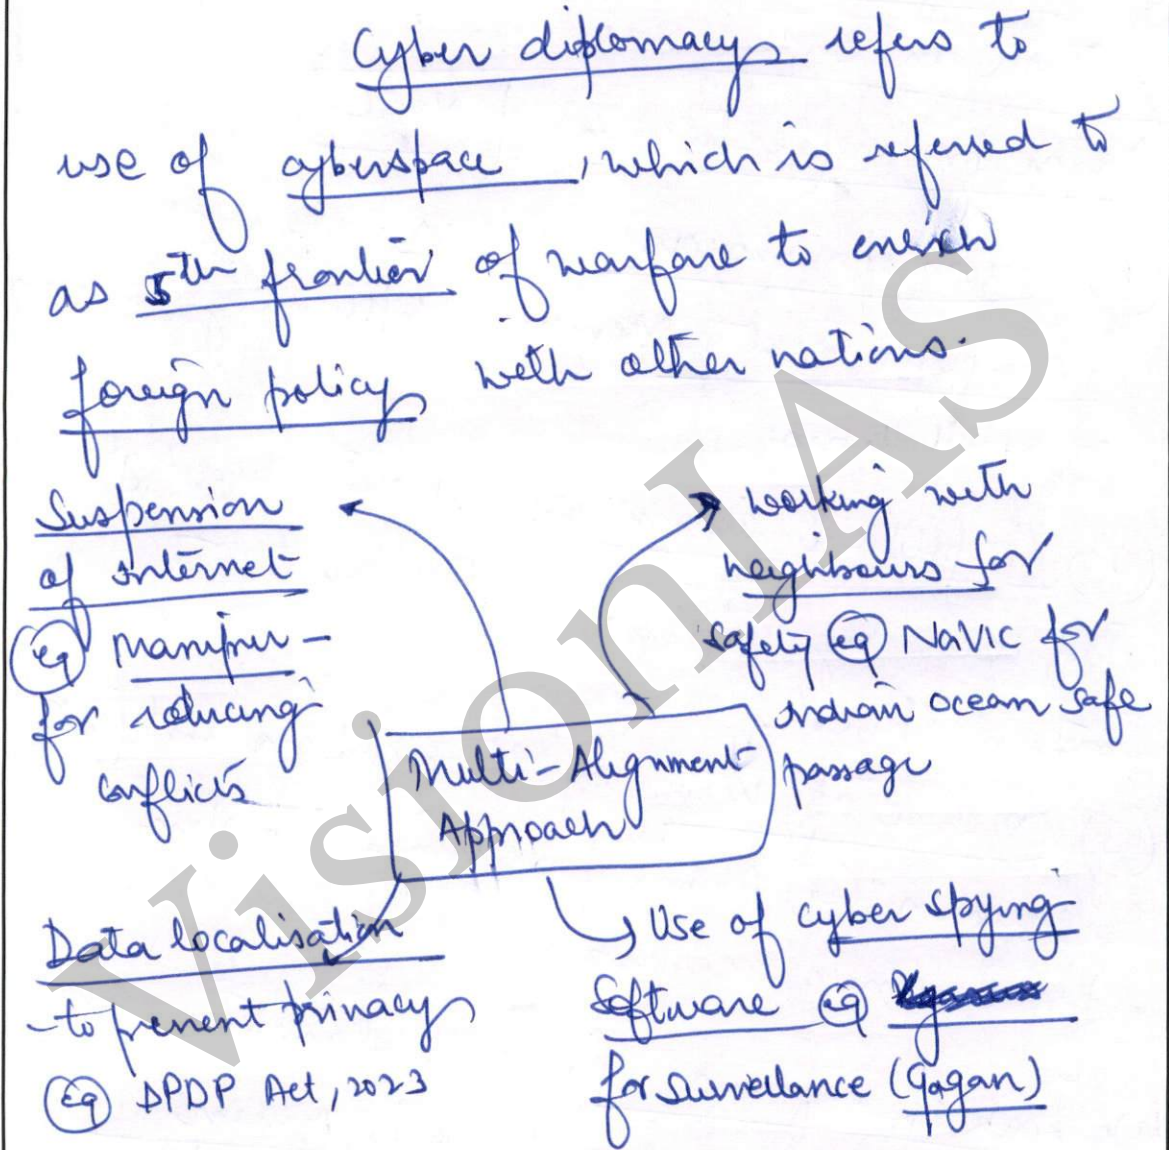 Cyber diplomacy refers to
use of cyberspace, which is referred to
as 5th frontier of warfare to enrich
foreign policy with other nations.
Suspension
of internet
eg Manipur -
for reducing
conflicts
working with
neighbours for
safety eg NaVIC for
Indian ocean safe
passage
Multi-Alignment
Approach
Data localisation
- to prevent privacy
eg DPDP Act, 2023
Use of cyber spying
software eg
for surveillance (Gagan)
VisionIAS